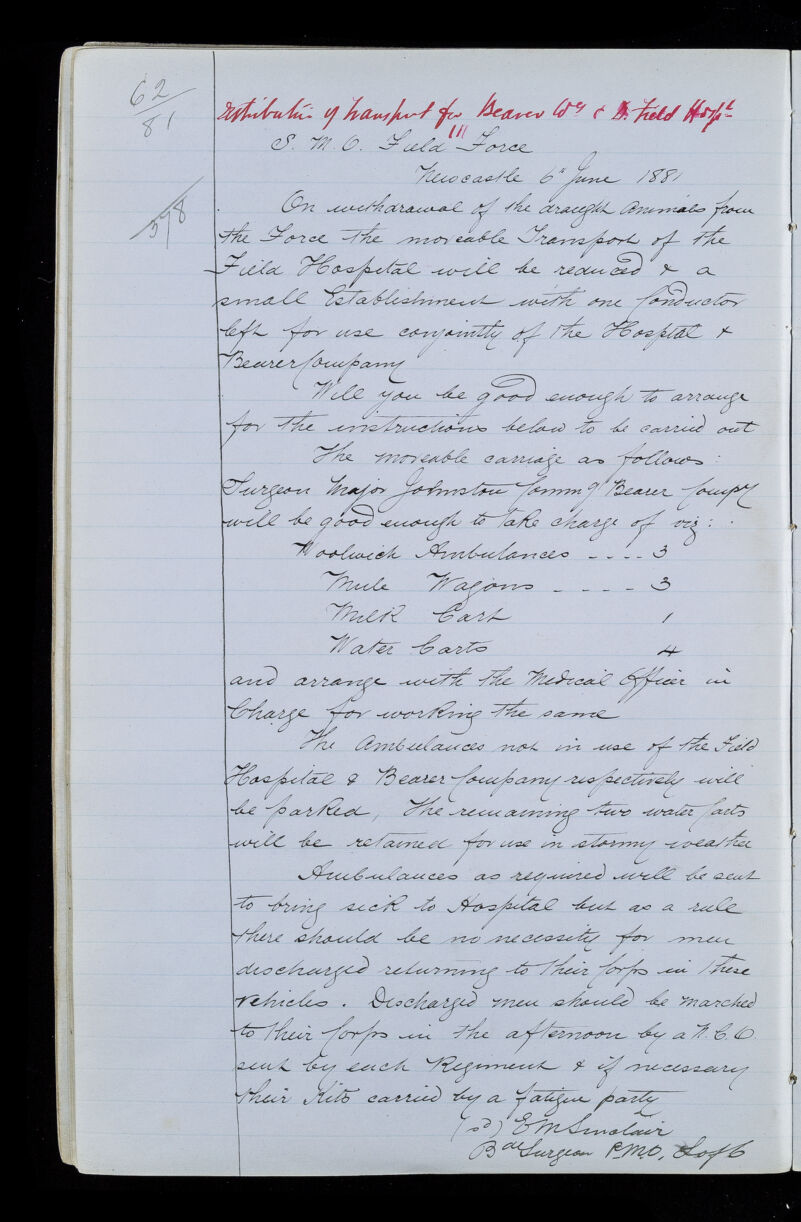 62
81
Distribution of transport for Bearer Coy & Field Hospl
S. M. O. Field Force
Newcastle 6th June 1881
378
On withdrawal of the draught animals from
the Force the moveable Transport of the
Field Hospital will be reduced & a
small Establishment with one Conductor
left for use conjointly of the Hospital &
Bearer Company
Will you be good enough to arrange
for the instructions below to be carried out
The moveable carriage as follows:
Surgeon Major Johnston Commg Bearer Compy
will be good enough to take charge of viz:
Woolwich Ambulances - - - - 3
Mule Wagons - - - - - 3
Milk Cart 1
Water Carts 4
and arrange with the Medical Officer in
Charge for working the same
The Ambulances not in use of the Field
Hospital & Bearer Company respectively will
be parked, The remaining two water Carts
will be retained for use in stormy weather
Ambulances as required will be sent
to bring sick to Hospital but as a rule
there should be no necessity for men
discharged returning to their Corps in these
vehicles. Discharged men should be marched
to their Corps in the afternoon by a N.C.O.
sent by each Regiment & if necessary
their Kits carried by a fatigue party
(sd) E M Sinclair
Bde Surgeon P.M.O.